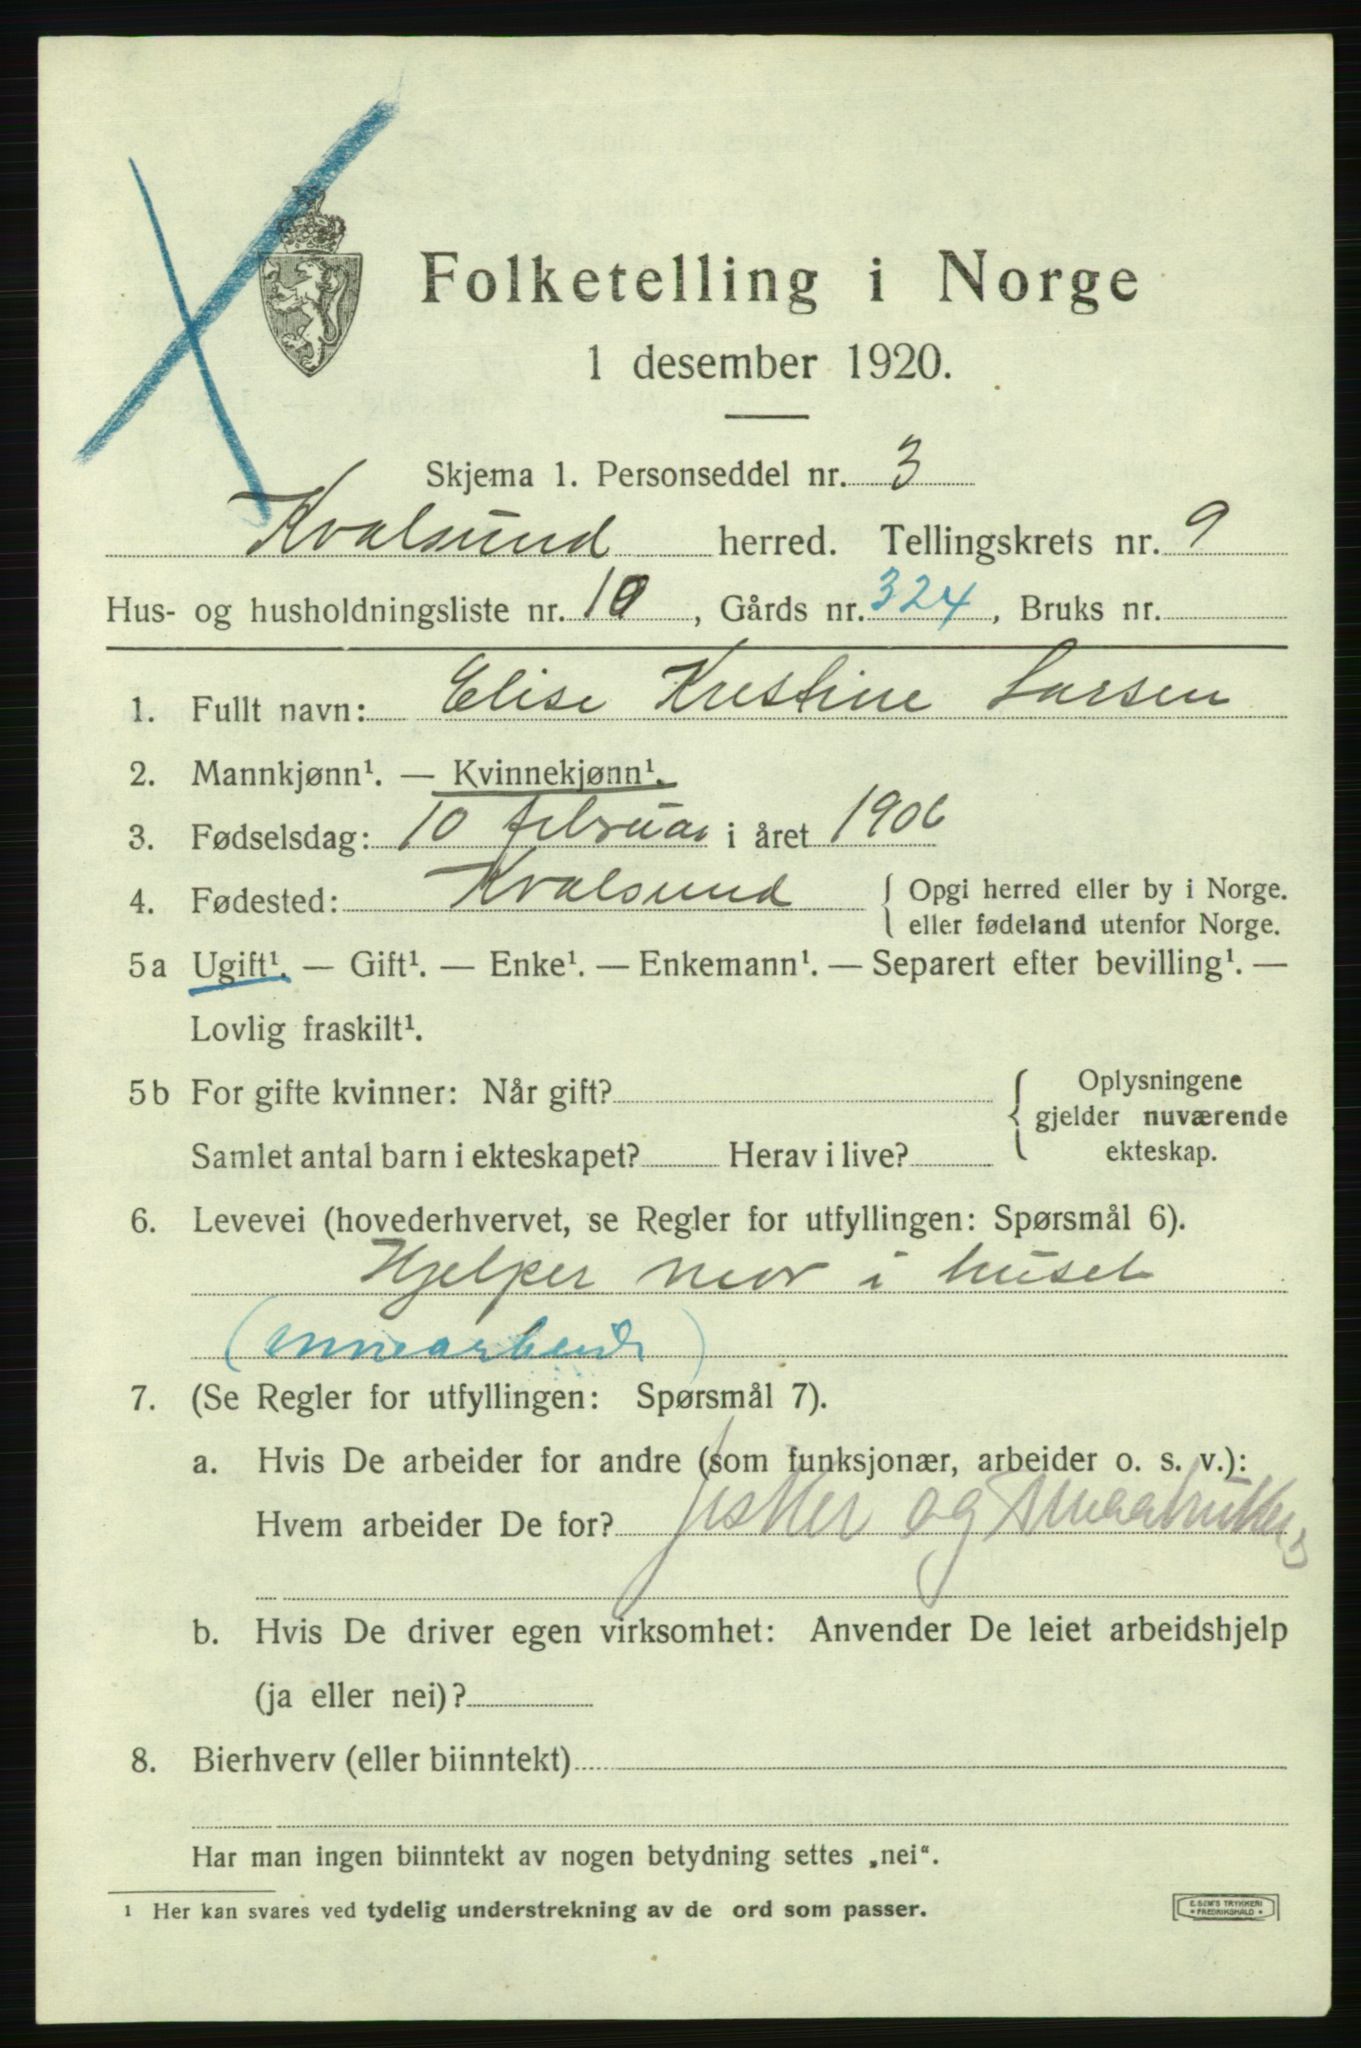 Folketelling i Norge
1 desember 1920.
Skjema 1. Personseddel nr. 3
Kvalsund herred. Tellingskrets nr. 9
Hus- og husholdningsliste nr. 10, Gårds nr. 324, Bruks nr.
1. Fullt navn: Elise Kristine Larsen
2. Mannkjønn¹. — Kvinnekjønn¹.
3. Fødselsdag: 10 februar i året 1906
4. Fødested: Kvalsund { Opgi herred eller by i Norge.
eller fødeland utenfor Norge.
5a Ugift¹. — Gift¹. — Enke¹. — Enkemann¹. — Separert efter bevilling¹. —
Lovlig fraskilt¹.
5b For gifte kvinner: Når gift? { Oplysningene
gjelder nuværende
Samlet antal barn i ekteskapet? Herav i live? ekteskap.
6. Levevei (hovederhvervet, se Regler for utfyllingen: Spørsmål 6).
Hjelper mor i huset
7. (Se Regler for utfyllingen: Spørsmål 7).
a. Hvis De arbeider for andre (som funksjonær, arbeider o. s. v.):
Hvem arbeider De for? fisker og smaabruker
b. Hvis De driver egen virksomhet: Anvender De leiet arbeidshjelp
(ja eller nei)?
8. Bierhverv (eller biinntekt)
Har man ingen biinntekt av nogen betydning settes „nei“.
¹ Her kan svares ved tydelig understrekning av de ord som passer.
E. SEM'S TRYKKERI
• FREDRIKSHALD •